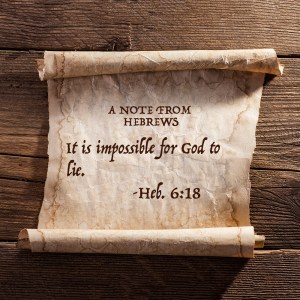 A NOTE FROM
HEBREWS
It is impossible for God to
lie.
-Heb. 6:18